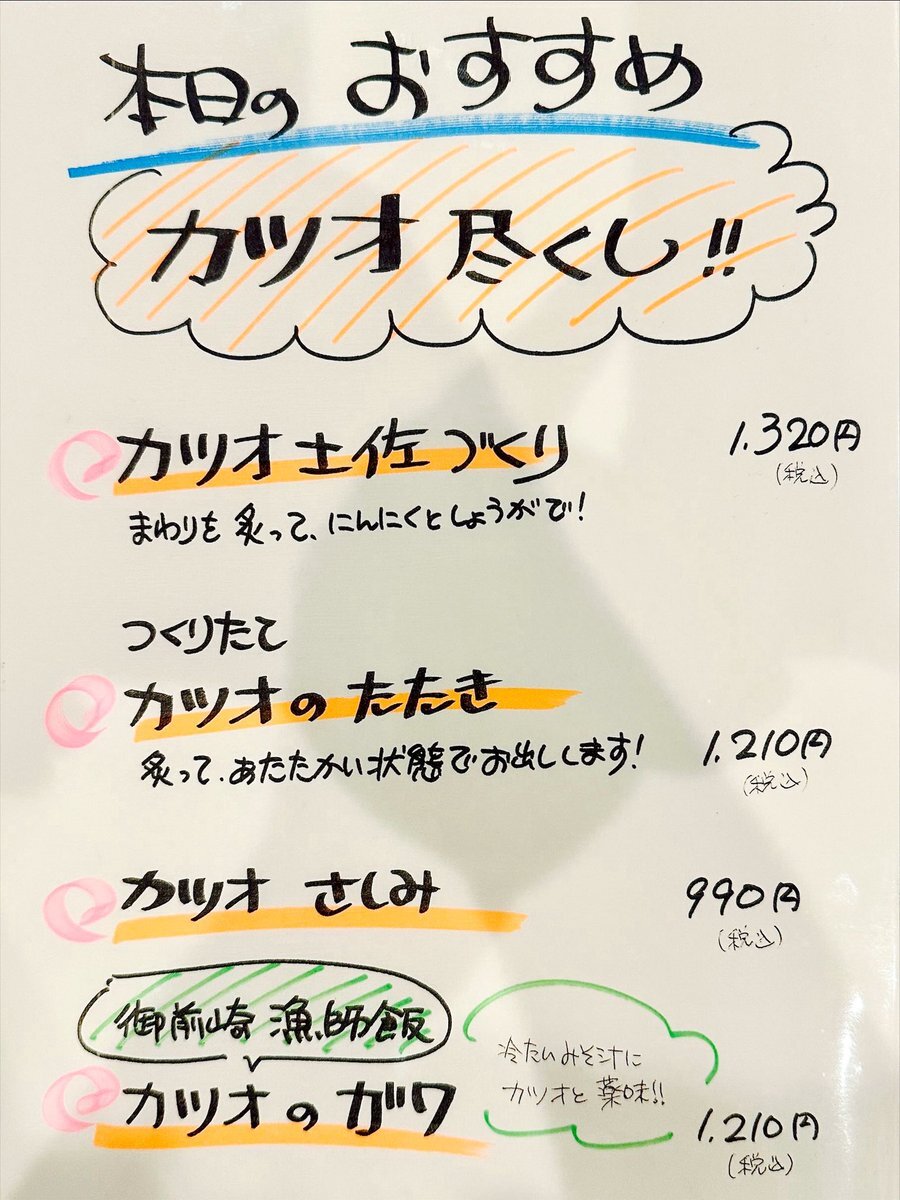 本日の おすすめ
カツオ 尽くし!!
カツオ 土佐づくり 1.320円
(税込)
まわりを 炙って、にんにくとしょうがで!
つくりたて
カツオの たたき
炙って、あたたかい状態でお出しします! 1.210円
(税込)
カツオ さしみ 990円
(税込)
御前崎 漁師飯
カツオの ガワ
冷たいみそ汁に
カツオと 薬味!!
1.210円
(税込)